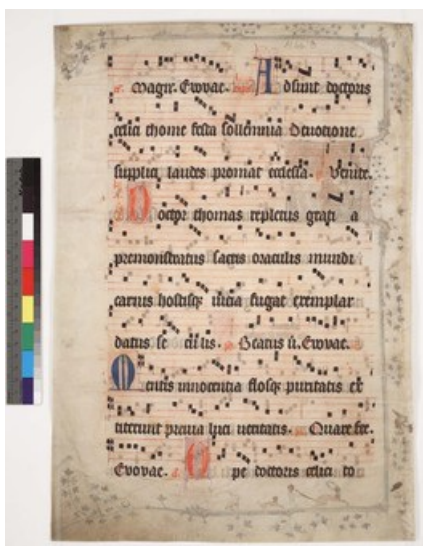 Magnr. Evovae. Adsunt doctoris
celici thome festa sollemnia Devotione
supplici laudes promat ecclesia. Venite.
Doctor thomas repletus grati a
premonstratus sacris oraculis mundi
carnis hostisqz vicia fugat exemplar
datus se cu lis. Beatus v. Evovae.
Mentis innocentia flosqz puritatis
titerunt previa luci veritatis. Quare fre.
Evovae. O pe doctoris celici to